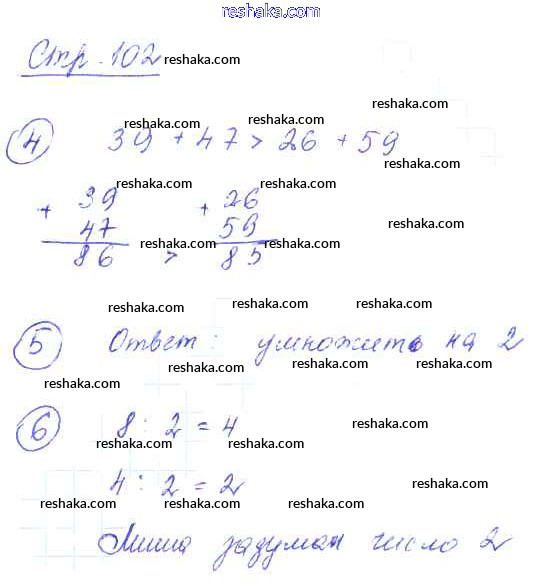 reshaka.com
Стр. 102 reshaka.com
reshaka.com
reshaka.com
4 39 + 47 > 26 + 59
reshaka.com reshaka.com
reshaka.com reshaka.com
+ 39 + 26
47 59 reshaka.com
86 > 85
reshaka.com
reshaka.com reshaka.com
reshaka.com
5 Ответ: умножить на 2
reshaka.com reshaka.com
reshaka.com
6 8 : 2 = 4 reshaka.com
reshaka.com reshaka.com
4 : 2 = 2 reshaka.com
reshaka.com reshaka.com
Миша задумал число 2
reshaka.com reshaka.com